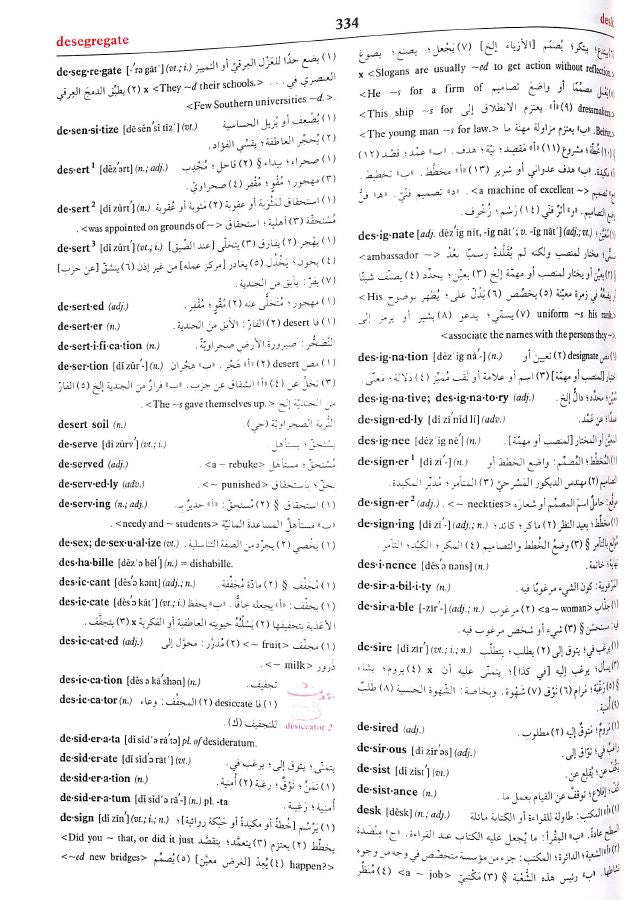 desegregate
334
desk
de·seg·re·gate [-′rə gāt′] (vt.; i.) (١) يضع حدًا للعَزْل العِرقيّ أو التمييز
العنصري في . . . <They ~d their schools.> x (٢) يطبِّق الدمجَ العِرقي
<Few Southern universities ~d.>
de·sen·si·tize [dē sĕn′sĭ tīz′] (vt.) (١) يُضعف أو يُزيل الحساسية
(٢) يُحجِّر العاطفة؛ يقسِّي الفؤاد.
des·ert¹ [dĕz′ərt] (n.; adj.) (١) صحراء؛ بيداء § (٢) قاحل؛ مُجْدِب
(٣) مهجور؛ مُقْوٍ؛ مُقْفِر (٤) صحراويّ.
de·sert² [dĭ zûrt′] (n.) (١) استحقاق لمَثُوبة أو عقوبة (٢) مَثوبة أو عقوبة
مُسْتَحَقَّة (٣) أهلية؛ استحقاق <was appointed on grounds of ~>.
de·sert³ [dĭ zûrt′] (vt.; i.) (١) يَهْجر (٢) يفارق (٣) يتخلَّى [عند الضِّيق]
(٤) يخون؛ يَخْذُل (٥) يغادر [مركز عمله] من غير إذن (٦) ينشقّ [عن حزب]
(٧) يفرّ؛ يأبق من الجندية.
de·sert·ed (adj.) (١) مهجور؛ مُتَخلًّى عنه (٢) مُقْوٍ؛ مُقْفِر.
de·sert·er (n.) (١) فا desert (٢) الفارّ: الآبق من الجندية.
de·sert·i·fi·ca·tion (n.) التَّصَحُّر: صيرورة الأرض صحراويَّة.
de·ser·tion [dĭ zûr′-] (n.) (١) مص desert (٢) «أ» هَجْر. «ب» هِجْران
(٣) تَخَلٍّ عن (٤) «أ» انشقاق عن حزب. «ب» فرارٌ من الجندية إلخ (٥) الفارّ
من الجنديّة إلخ <The ~s gave themselves up.>.
desert soil (n.) التُّربة الصحراويّة (جي).
de·serve [dĭ zûrv′] (vt.; i.) يستحقّ؛ يستأهل.
de·served (adj.) مُسْتَحَقّ؛ مستأهل <a ~ rebuke>.
de·serv·ed·ly (adv.) بحقّ؛ باستحقاق <~ punished>.
de·serv·ing (n.; adj.) (١) استحقاق § (٢) مُستحِقّ: «أ» جدير بـ.
«ب» مستأهل المساعدة الماليّة <needy and ~ students>.
de·sex; de·sex·u·al·ize (vt.) (١) يُخْصِي (٢) يجرِّد من الصفة التناسلية.
des·ha·bille [dĕz′ə bēl′] (n.) = dishabille.
des·ic·cant [dĕs′ə kənt] (adj.; n.) (١) مُجفِّف § (٢) مادّة مُجَفِّفة.
des·ic·cate [dĕs′ə kāt′] (vt.; i.) (١) يجفِّف: «أ» يجعله جافًّا. «ب» يحفظ
الأغذية بتجفيفها (٢) يسْلُبُه حيويته العاطفية أو الفكرية x (٣) يتجفَّف.
des·ic·cat·ed (adj.) (١) مجفَّف <~ fruit> (٢) مُذَرَّر: محوَّل إلى
ذَرور <~ milk>.
des·ic·ca·tion [dĕs ə kā′shən] (n.) تجفيف.
des·ic·ca·tor (n.) (١) فا desiccate (٢) المجفِّف: وعاء
للتجفيف (ك).
desiccator 2
de·sid·er·a·ta [dĭ sĭd′ə rā′tə] pl. of desideratum.
de·sid·er·ate [dĭ sĭd′ə rāt′] (vt.) يتمنّى؛ يتوق إلى؛ يرغب في.
de·sid·er·a·tion (n.) (١) تَمَنٍّ؛ تَوْقٌ؛ رغبة (٢) أُمنية.
de·sid·er·a·tum [dĭ sĭd′ə rā′-] (n.) pl. -ta أُمنية؛ رغيبة.
de·sign [dĭ zīn′] (vt.; i.; n.) (١) يَرْسُم [خُطةً أو مكيدةً أو حَبْكة روائية]؛
يخطِّط (٢) يعتزم (٣) يتعمَّد؛ يتقصَّد <Did you ~ that, or did it just
happen?> (٤) يُعِدّ [لغرض معيَّن] (٥) يُصمِّم <~ed new bridges>
(٦) يبتدع؛ يبتكر؛ يُصمِّم [الأزياء إلخ] (٧) يَجْعل؛ يصنع؛ يصوغ
<Slogans are usually ~ed to get action without reflection.> x
(٨) يعمل مصمِّمًا أو واضعَ تصاميم <He ~s for a firm of
dressmakers> (٩) «أ» يعتزم الانطلاق إلى <This ship ~s for
Beirut>. «ب» يعتزم مزاولة مهنة ما <The young man ~s for law.>
(١٠) خُطّة؛ مشروع (١١) «أ» مَقصِد؛ نيّة؛ هدف. «ب» عمْد؛ قصْد (١٢)
«أ» مكيدة. «ب» هدف عدوانيّ أو شرير (١٣) «أ» مخطَّط. «ب» تخطيط.
تصميم <a machine of excellent ~>. «د» تصميم فنّيّ.
التصاميم. «و» أثرٌ فنّي (١٤) رَسْم؛ زُخرف.
des·ig·nate [adj. dĕz′ig nit, -ĭg nāt′; v. -ĭg nāt′] (adj.; vt.) (١) مُعيَّن؛
سمَّى؛ مختار لمنصب ولكنه لم يُقَلَّدْه رسميًّا بَعْدُ <ambassador ~>
§ (٢) يعيِّن أو يختار لمنصب أو مهمّة إلخ (٣) يعيِّن؛ يحدِّد (٤) يصنِّف شيئًا
أو يضعُهُ في زمرة معيَّنة (٥) يخصِّص (٦) يَدُلّ على؛ يُظهر بوضوح <His
uniform ~s his rank> (٧) يسمِّي؛ يدعو (٨) يشير أو يرمز إلى
<associate the names with the persons they ~>.
des·ig·na·tion [dĕz′ig nā′-] (n.) (١) مص designate (٢) تعيين أو
اختيار [لمنصب أو مهمّة] (٣) اسم أو علامة أو لَقب مُميِّز (٤) دلالة؛ معنًى.
des·ig·na·tive; des·ig·na·to·ry (adj.) مُعيِّن؛ محدِّد؛ دالٌّ إلخ.
de·sign·ed·ly [dĭ zī′nĭd lĭ] (adv.) عمدًا؛ عن عَمْد.
des·ig·nee [dĕz′ig nē′] (n.) المعيَّن أو المختار [لمنصب أو مهمّة].
de·sign·er¹ [dĭ zī′-] (n.) (١) المُخطِّط؛ المُصمِّم: واضع الخطط أو
التصاميم (٢) مهندس الديكور المَسْرحي (٣) المتآمر؛ مُدبِّر المكيدة.
de·sign·er² (adj.) مُوقَّع: حاملٌ اسمَ المصمِّم أو شعارَه <~ neckties>.
de·sign·ing [dĭ zī′-] (adj.; n.) (١) مخطِّط؛ بعيد النظر (٢) ماكر؛ كائد؛
مُولَع بالتآمر § (٣) وضعُ الخُطط والتصاميم (٤) المكر؛ الكيْد؛ التآمر.
des·i·nence [dĕs′ə nəns] (n.) نهاية؛ خاتمة.
de·sir·a·bil·i·ty (n.) المَرْغوبية: كون الشيء مرغوبًا فيه.
de·sir·a·ble [-zīr′-] (adj.; n.) (١) جذّاب <a ~ woman> (٢) مرغوب
فيه؛ مستحسَن § (٣) شيء أو شخص مرغوب فيه.
de·sire [dĭ zīr′] (vt.; i.; n.) (١) يرغب في؛ يتوق إلى (٢) يطلب؛ يتطلّب
(٣) يسأل؛ يرغب إليه [في كذا]؛ يتمنى عليه أن x (٤) يروم؛ يشاء
§ (٥) رَغْبة؛ مُرام (٦) تَوْق (٧) شهوة. وبخاصة: الشهوة الجنسية (٨) طلبٌ
(٩) أمنية.
de·sired (adj.) (١) مَرُوم؛ مَتُوقٌ إليه (٢) مطلوب.
de·sir·ous [dĭ zīr′əs] (adj.) راغبٌ في؛ توّاق إلى.
de·sist [dĭ zĭst′] (vi.) يكُفّ عن؛ يُقلع عن.
de·sist·ance (n.) كفّ؛ إقلاع؛ توقُّف عن القيام بعمل ما.
desk [dĕsk] (n.; adj.) (١) «أ» المكتب: طاولة للقراءة أو الكتابة مائلة
السطح عادةً. «ب» المِقْرأ: ما يُجعل عليه الكتاب عند القراءة. «ج» مِنْضدة
(٢) «أ» الشعبة؛ الدائرة؛ المكتب: جزء من مؤسسة متخصّص في وجه من وجوه
نشاطها. «ب» رئيس هذه الشُّعبة § (٣) مَكْتبيّ <a ~ job> (٤) مُنَظَّر